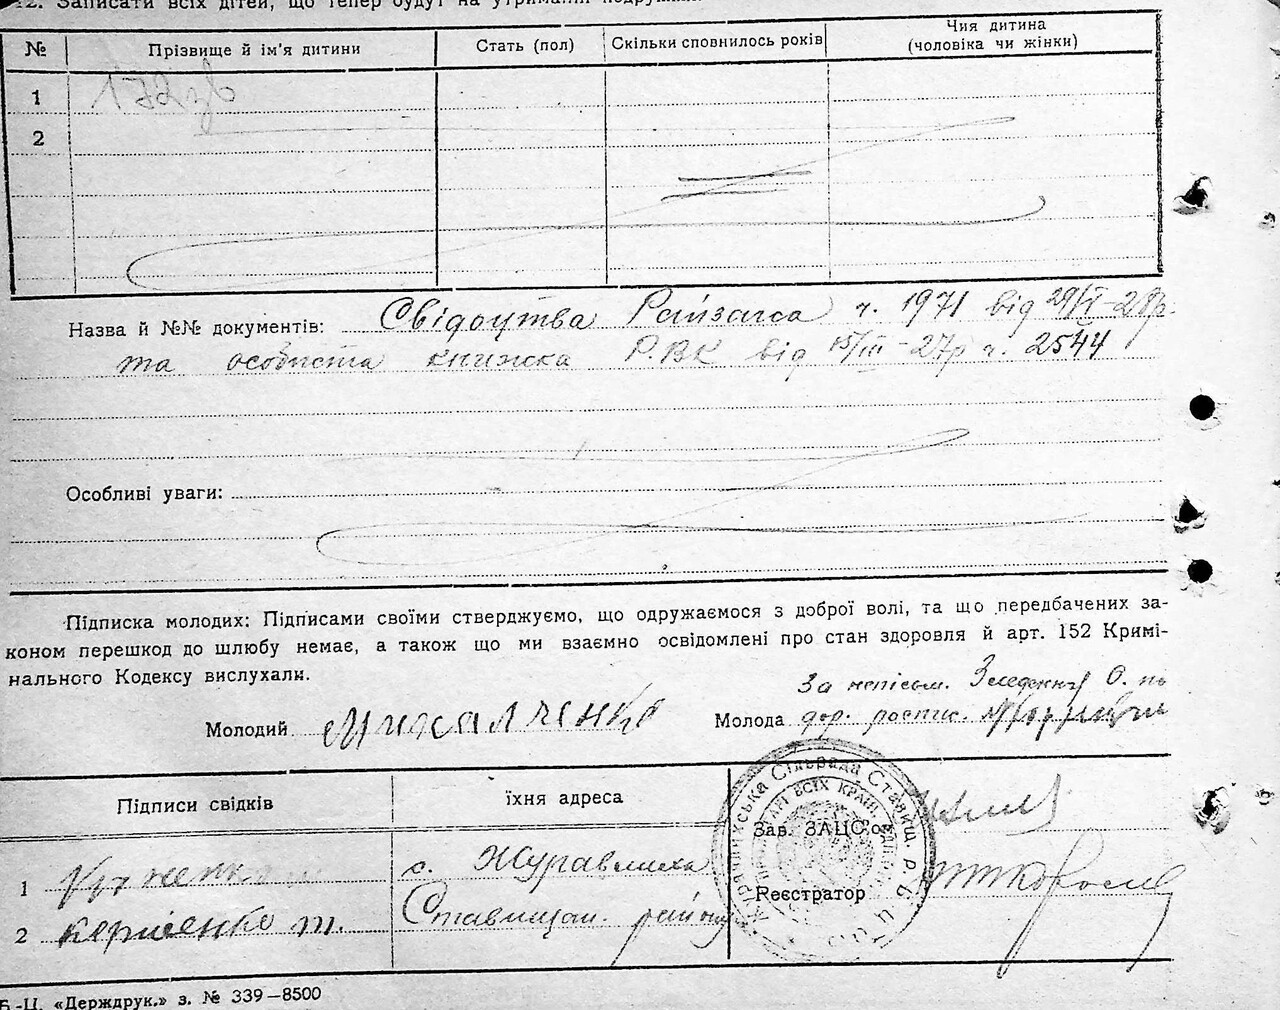 12. Записати всіх дітей, що тепер будут на утриманні подружж
№ Прізвище й ім'я дитини Стать (пол) Скільки сповнилось років Чия дитина (чоловіка чи жінки)
1 172зв
2
Назва й №№ документів: Свідоцтва Райзагса ч. 1971 від 29/VI-28р.
та особиста книжка Р.В.К від 15/III-27р ч. 2544
Особливі уваги:
Підписка молодих: Підписами своїми стверджуємо, що одружаємося з доброї волі, та що передбачених за-
коном перешкод до шлюбу немає, а також що ми взаємно освідомлені про стан здоровля й арт. 152 Кримі-
нального Кодексу вислухали.
За неписьм. О. по
Молодий Михалченко Молода дор. роспис.
Підписи свідків їхня адреса
Зав. ЗАЦС'ом
1 с. Журавлиха
Реєстратор
2 Керниенко т. Ставищан. району
Сільрада Ставищ. р. Б Ц
ВСІХ КРАЇН
Б.-Ц. «Держдрук.» з. № 339—8500